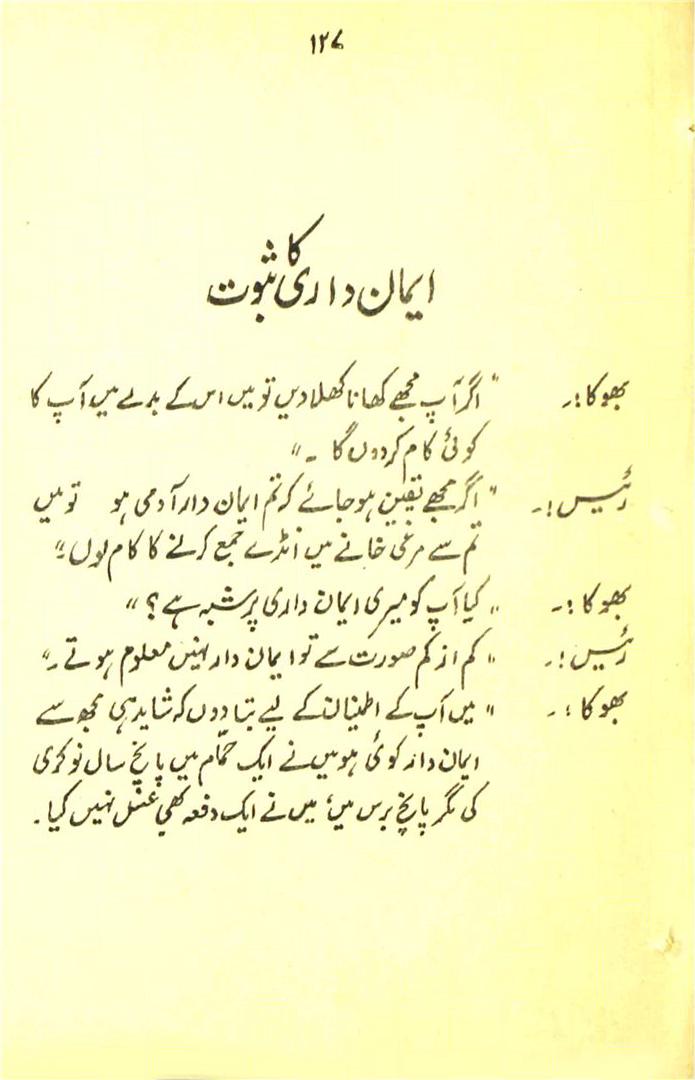 ۱۲۷
ایمان داری کا ثبوت
بھوکا:۔ "اگر آپ مجھے کھانا کھلا دیں تو میں اس کے بدلے میں آپ کا
کوئی کام کر دوں گا ۔"
رئیس:۔ "اگر مجھے یقین ہو جائے کہ تم ایمان دار آدمی ہو تو میں
تم سے مرغی خانے میں انڈے جمع کرنے کا کام لوں۔"
بھوکا:۔ "کیا آپ کو میری ایمان داری پر شبہ ہے؟"
رئیس:۔ "کم از کم صورت سے تو ایمان دار نہیں معلوم ہوتے۔"
بھوکا:۔ "میں آپ کے اطمینان کے لیے بتا دوں کہ شاید ہی مجھ سے
ایمان دار کوئی ہو میں نے ایک حمّام میں پانچ سال نوکری
کی مگر پانچ برس میں، میں نے ایک دفعہ بھی غسل نہیں کیا۔